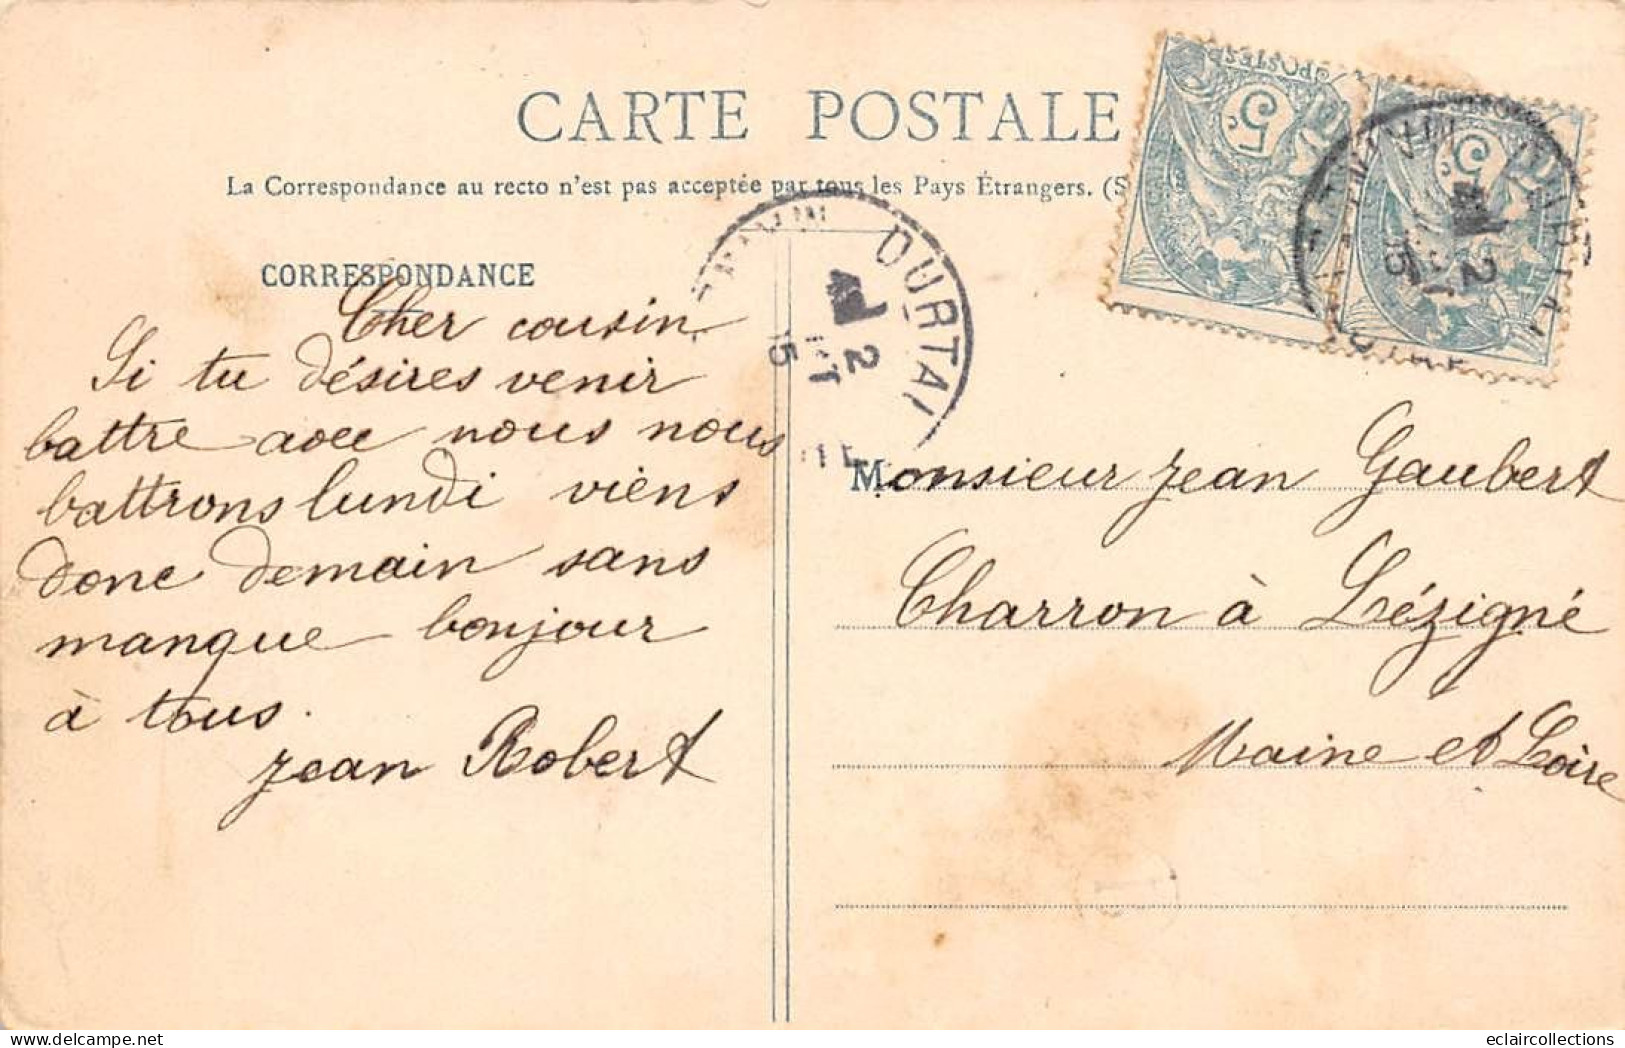 CARTE POSTALE
La Correspondance au recto n'est pas acceptée par tous les Pays Étrangers. (S
CORRESPONDANCE
Cher cousin
Si tu désires venir
battre avec nous nous
battrons lundi viens
donc demain sans
manque bonjour
à tous.
Jean Robert
POSTES
5c
5c
DURTAL
2
15
2
15
Monsieur Jean Gaubert
Charron à Lézigné
Maine et Loire
eclaircollections